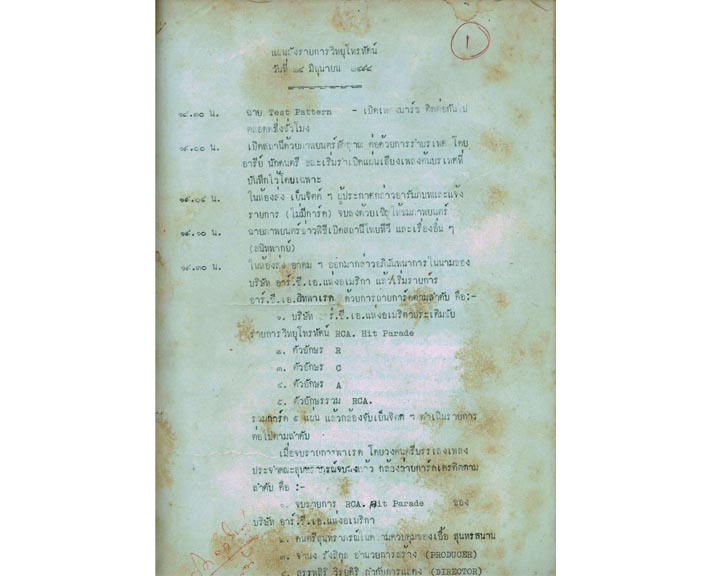 1
แผนผังรายการวิทยุโทรทัศน์
วันที่ ๒๔ มิถุนายน ๒๔๙๘
๑๘.๓๐ น. ฉาย Test Pattern - เปิดเพลงมาร์ช ติดต่อกันไป
ตลอดครึ่งชั่วโมง
๑๙.๐๐ น. เปิดสถานีด้วยภาพยนตร์สัญญาณ ต่อด้วยการรำบรเทศ โดย
อารีย์ นักดนตรี ขณะเริ่มรำเปิดแผ่นเสียงเพลงต้นบรเทศที่
บันทึกไว้โดยเฉพาะ
๑๙.๐๕ น. ในห้องส่ง เย็นจิตต์ ฯ ผู้ประกาศกล่าวอารัมภบทและแจ้ง
รายการ (ไม่มีการ์ด) จบลงด้วยเชิญให้ชมภาพยนตร์
๑๙.๑๐ น. ฉายภาพยนตร์ข่าวพิธีเปิดสถานีไทยทีวี และเรื่องอื่น ๆ
๑๙.๓๐ น. ในห้องส่ง อาคม ฯ ออกมากล่าวอภินันทนาการในนามของ
บริษัท อาร์.ซี.เอ.แห่งอเมริกา แล้วเริ่มรายการ
อาร์.ซี.เอ.ฮิทพาเรด ด้วยการฉายการ์ดตามลำดับ คือ:-
๑. บริษัท อาร์.ซี.เอ.แห่งอเมริกาประเดิมกับ
รายการวิทยุโทรทัศน์ RCA. Hit Parade
๒. ตัวอักษร R
๓. ตัวอักษร C
๔. ตัวอักษร A
๕. ตัวอักษรรวม RCA.
รวมการ์ด ๕ แผ่น แล้วกล้องจับเย็นจิตต์ ฯ ดำเนินรายการ
ต่อไปตามลำดับ
เมื่อจบรายการพาเรด โดยวงดนตรีบรรเลงเพลง
ประจำคณะสุนทราภรณ์จบลงแล้ว กล้องฉายการ์ดเครดิตตาม
ลำดับ คือ :-
๑. จบรายการ RCA. Hit Parade ของ
บริษัท อาร์.ซี.เอ.แห่งอเมริกา
๒. ดนตรีสุนทราภรณ์ในความควบคุมของเอื้อ สุนทรสนาน
๓. จำนง รังสิกุล อำนวยการสร้าง (PRODUCER)
๔. สรรพสิริ วิรยศิริ กำกับการแสดง (DIRECTOR)